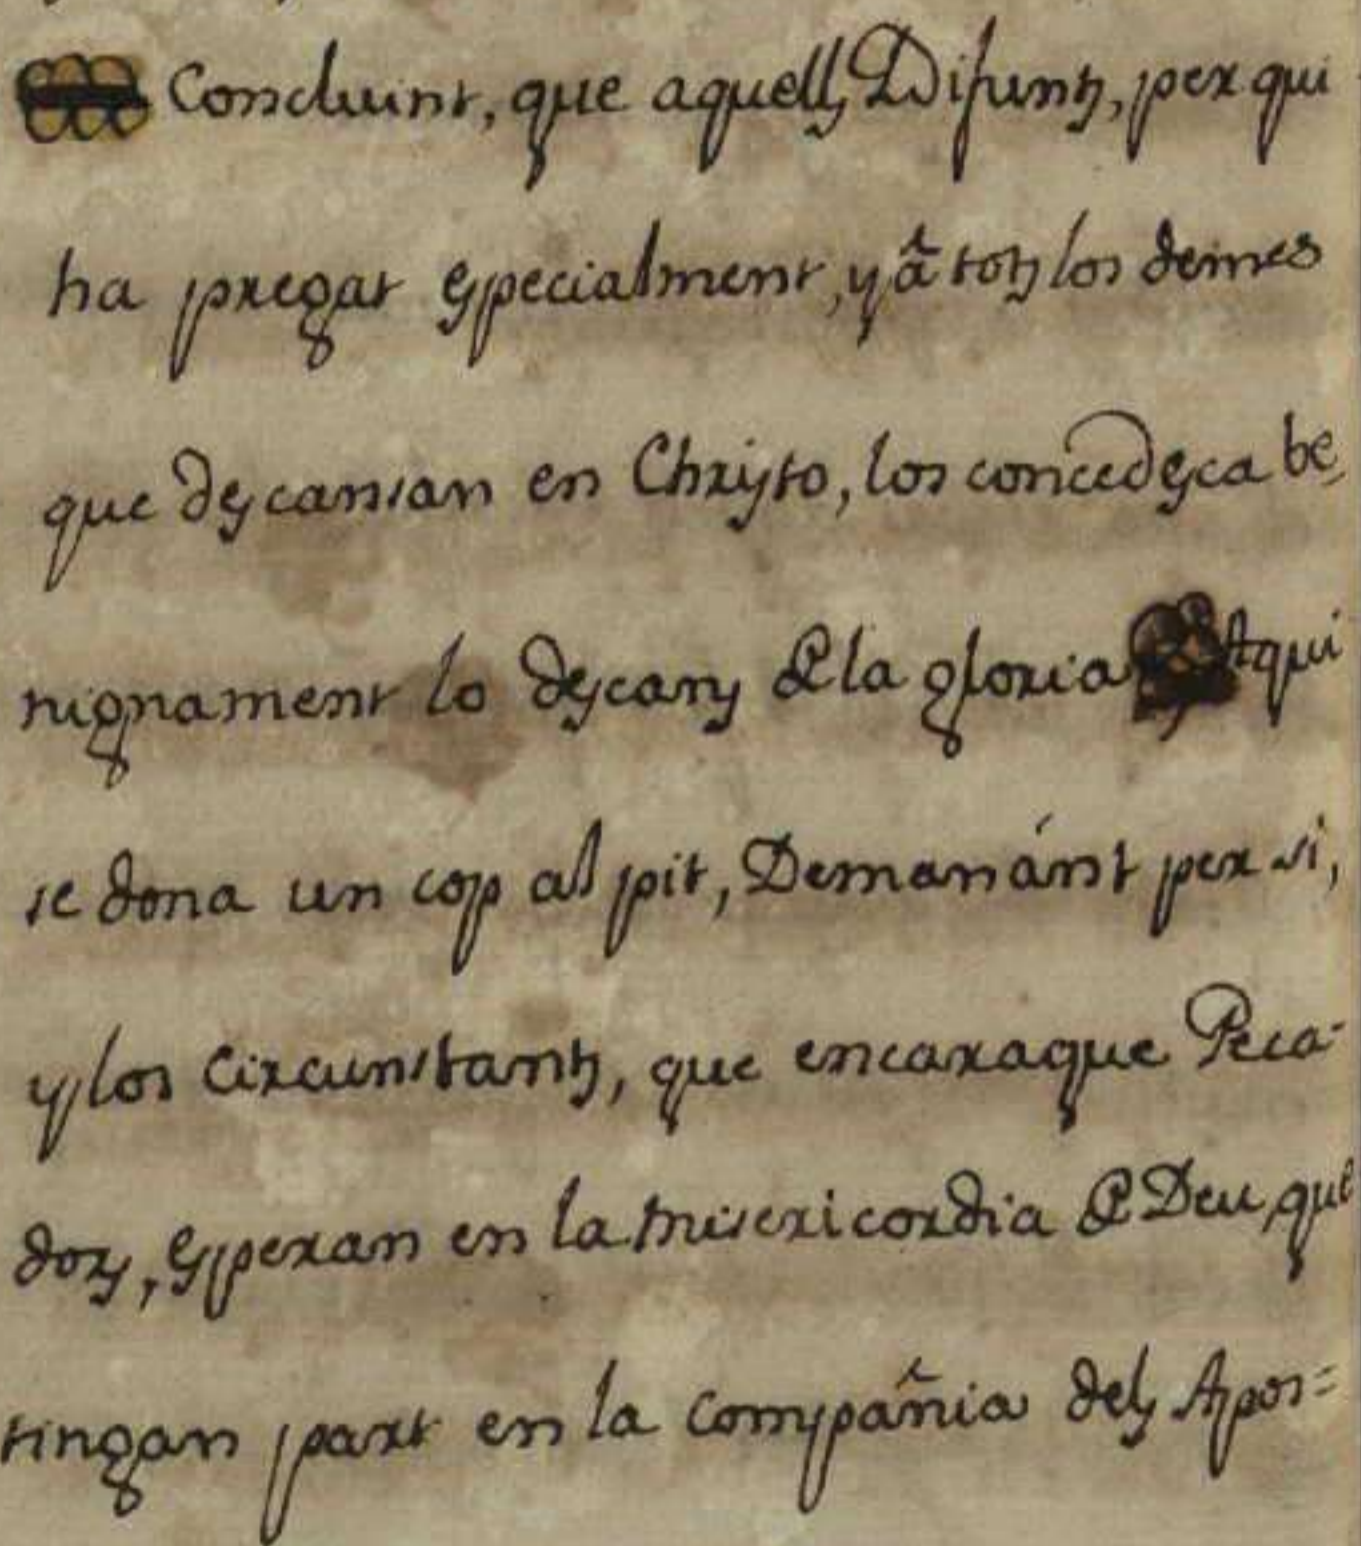 Concluint, que aquells Difunts, per qui
ha pregat especialment, y â tots los demes
que descansan en Christo, los concedesca be,
nignament lo descans de la gloria Aqui
se dona un cop al pit, Demanánt per si,
y los Circunstants, que encaraque Peca-
dors, esperan en la misericordia de Deu, que
tingan part en la compañia dels Apos=